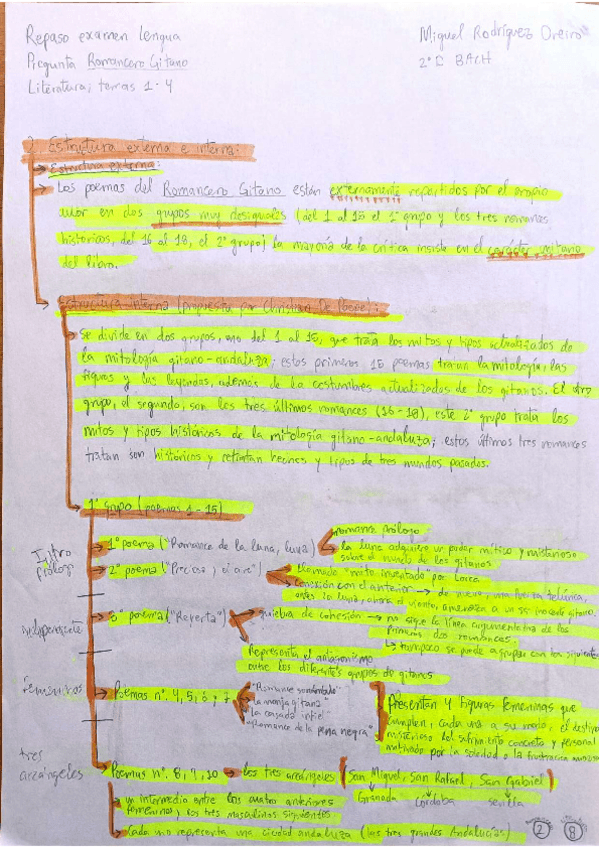 Repaso examen lengua
Miguel Rodríguez Oreiro
Pregunta Romancero Gitano
2º C BACH
Literatura; temas 1-4
2. Estructura externa e interna:
Estructura externa:
Los poemas del Romancero Gitano están externamente repartidos por el propio
autor en dos grupos muy desiguales (del 1 al 15 el 1º grupo y los tres romances
históricos, del 16 al 18, el 2º grupo). La mayoría de la crítica insiste en el carácter unitario
del libro.
Estructura interna (propuesta por Christian De Paepe):
Se divide en dos grupos, uno del 1 al 15, que trata los mitos y tipos actualizados de
la mitología gitano-andaluza; estos primeros 15 poemas tratan la mitología, las
figuras y las leyendas, además de la costumbres actualizados de los gitanos. El otro
grupo, el segundo, son los tres últimos romances (16-18), este 2º grupo trata los
mitos y tipos históricos de la mitología gitano-andaluza; estos últimos tres romances
tratan son históricos y retratan hechos y tipos de tres mundos pasados.
1º grupo (poemas 1-15)
Intro
prólogo
1º poema ("Romance de la luna, luna")
romance prólogo
la luna adquiere un poder mítico y misterioso
sobre el mundo de los gitanos
2º poema ("Preciosa y el aire")
llamado "mito inventado por Lorca
conexión con el anterior → de nuevo, una fuerza telúrica,
antes la luna, ahora el viento, amenazan a un ser inocente gitano.
independiente
3º poema ("Reyerta")
quiebra de cohesión → no sigue la línea argumentativa de los
primeros dos romances
↳ tampoco se puede agrupar con los siguientes
Representa el antagonismo
entre los diferentes grupos de gitanos
femeninos
Poemas nº 4, 5, 6 y 7
"Romance sonámbulo"
"La monja gitana"
"La casada infiel"
"Romance de la pena negra"
Presentan 4 figuras femeninas que
cumplen, cada una a su modo, el destino
misterioso del sufrimiento concreto y personal
motivado por la soledad o la frustración
tres
arcángeles
Poemas nº 8, 9, 10 → los tres arcángeles (San Miguel, San Rafael, San Gabriel)
Granada córdoba sevilla
un intermedio entre los cuatro anteriores
femeninos y los tres masculinos siguientes
Cada uno representa una ciudad andaluza (las tres grandes Andalucías)
2 8